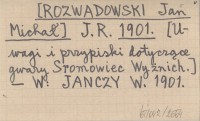 [ROZWADOWSKI Jan
Michał] J. R. 1901. [U-
wagi i przypiski dotyczące
gwary Sromowiec Wyżnich.]
— W: JANCZY W. 1901.